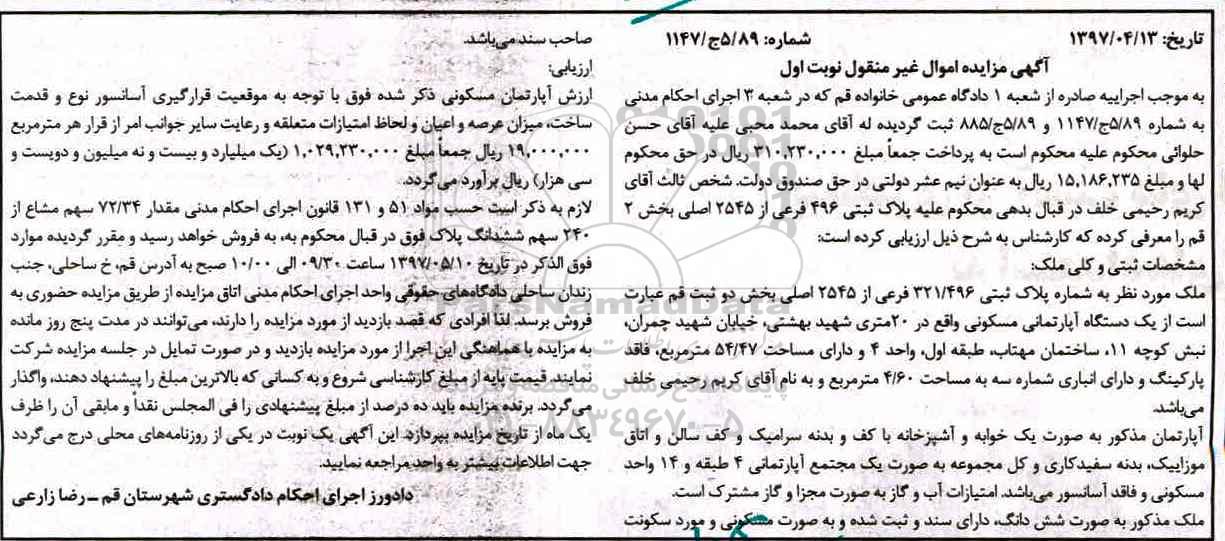 تاریخ: ۱۳۹۷/۰۴/۱۳ شماره: ۵/۸۹ج/۱۱۴۷
آگهی مزایده اموال غیر منقول نوبت اول
به موجب اجراییه صادره از شعبه ۱ دادگاه عمومی خانواده قم که در شعبه ۳ اجرای احکام مدنی
به شماره ۵/۸۹ج/۱۱۴۷ و ۵/۸۹ج/۸۸۵ ثبت گردیده له آقای محمد محبی علیه آقای حسن
حلوائی محکوم علیه محکوم است به پرداخت جمعاً مبلغ ۳۱۰,۲۳۰,۰۰۰ ریال در حق محکوم
لها و مبلغ ۱۵,۱۸۶,۲۳۵ ریال به عنوان نیم عشر دولتی در حق صندوق دولت. شخص ثالث آقای
کریم رحیمی خلف در قبال بدهی محکوم علیه پلاک ثبتی ۴۹۶ فرعی از ۲۵۴۵ اصلی بخش ۲
قم را معرفی کرده که کارشناس به شرح ذیل ارزیابی کرده است:
مشخصات ثبتی و کلی ملک:
ملک مورد نظر به شماره پلاک ثبتی ۳۲۱/۴۹۶ فرعی از ۲۵۴۵ اصلی بخش دو ثبت قم عبارت
است از یک دستگاه آپارتمانی مسکونی واقع در ۲۰متری شهید بهشتی، خیابان شهید چمران،
نبش کوچه ۱۱، ساختمان مهتاب، طبقه اول، واحد ۴ و دارای مساحت ۵۴/۴۷ مترمربع، فاقد
پارکینگ و دارای انباری شماره سه به مساحت ۴/۶۰ مترمربع و به نام آقای کریم رحیمی خلف
می‌باشد.
آپارتمان مذکور به صورت یک خوابه و آشپزخانه با کف و بدنه سرامیک و کف سالن و اتاق
موزاییک، بدنه سفیدکاری و کل مجموعه به صورت یک مجتمع آپارتمانی ۴ طبقه و ۱۴ واحد
مسکونی و فاقد آسانسور می‌باشد. امتیازات آب و گاز به صورت مجزا و گاز مشترک است.
ملک مذکور به صورت شش دانگ، دارای سند و ثبت شده و به صورت مسکونی و مورد سکونت
صاحب سند می‌باشد.
ارزیابی:
ارزش آپارتمان مسکونی ذکر شده فوق با توجه به موقعیت قرارگیری آسانسور نوع و قدمت
ساخت، میزان عرصه و اعیان و لحاظ امتیازات متعلقه و رعایت سایر جوانب امر از قرار هر مترمربع
۱۹,۰۰۰,۰۰۰ ریال جمعاً مبلغ ۱,۰۲۹,۲۳۰,۰۰۰ (یک میلیارد و بیست و نه میلیون و دویست و
سی هزار) ریال برآورد می‌گردد.
لازم به ذکر است حسب مواد ۵۱ و ۱۳۱ قانون اجرای احکام مدنی مقدار ۷۲/۳۴ سهم مشاع از
۲۴۰ سهم ششدانگ پلاک فوق در قبال محکوم به، به فروش خواهد رسید و مقرر گردیده موارد
فوق الذکر در تاریخ ۱۳۹۷/۰۵/۱۰ ساعت ۰۹/۳۰ الی ۱۰/۰۰ صبح به آدرس قم، خ ساحلی، جنب
زندان ساحلی دادگاه‌های حقوقی واحد اجرای احکام مدنی اتاق مزایده از طریق مزایده حضوری به
فروش برسد. لذا افرادی که قصد بازدید از مورد مزایده را دارند، می‌توانند در مدت پنج روز مانده
به مزایده با هماهنگی این اجرا از مورد مزایده بازدید و در صورت تمایل در جلسه مزایده شرکت
نمایند. قیمت پایه از مبلغ کارشناسی شروع و به کسانی که بالاترین مبلغ را پیشنهاد دهند، واگذار
می‌گردد. برنده مزایده باید ده درصد از مبلغ پیشنهادی را فی المجلس نقداً و مابقی آن را ظرف
یک ماه از تاریخ مزایده بپردازد. این آگهی یک نوبت در یکی از روزنامه‌های محلی درج می‌گردد
جهت اطلاعات بیشتر به واحد مراجعه نمایید.
دادورز اجرای احکام دادگستری شهرستان قم – رضا زارعی
ParsNamadData
۰۲۱-۸۸۳۴۹۶۷۰-۵